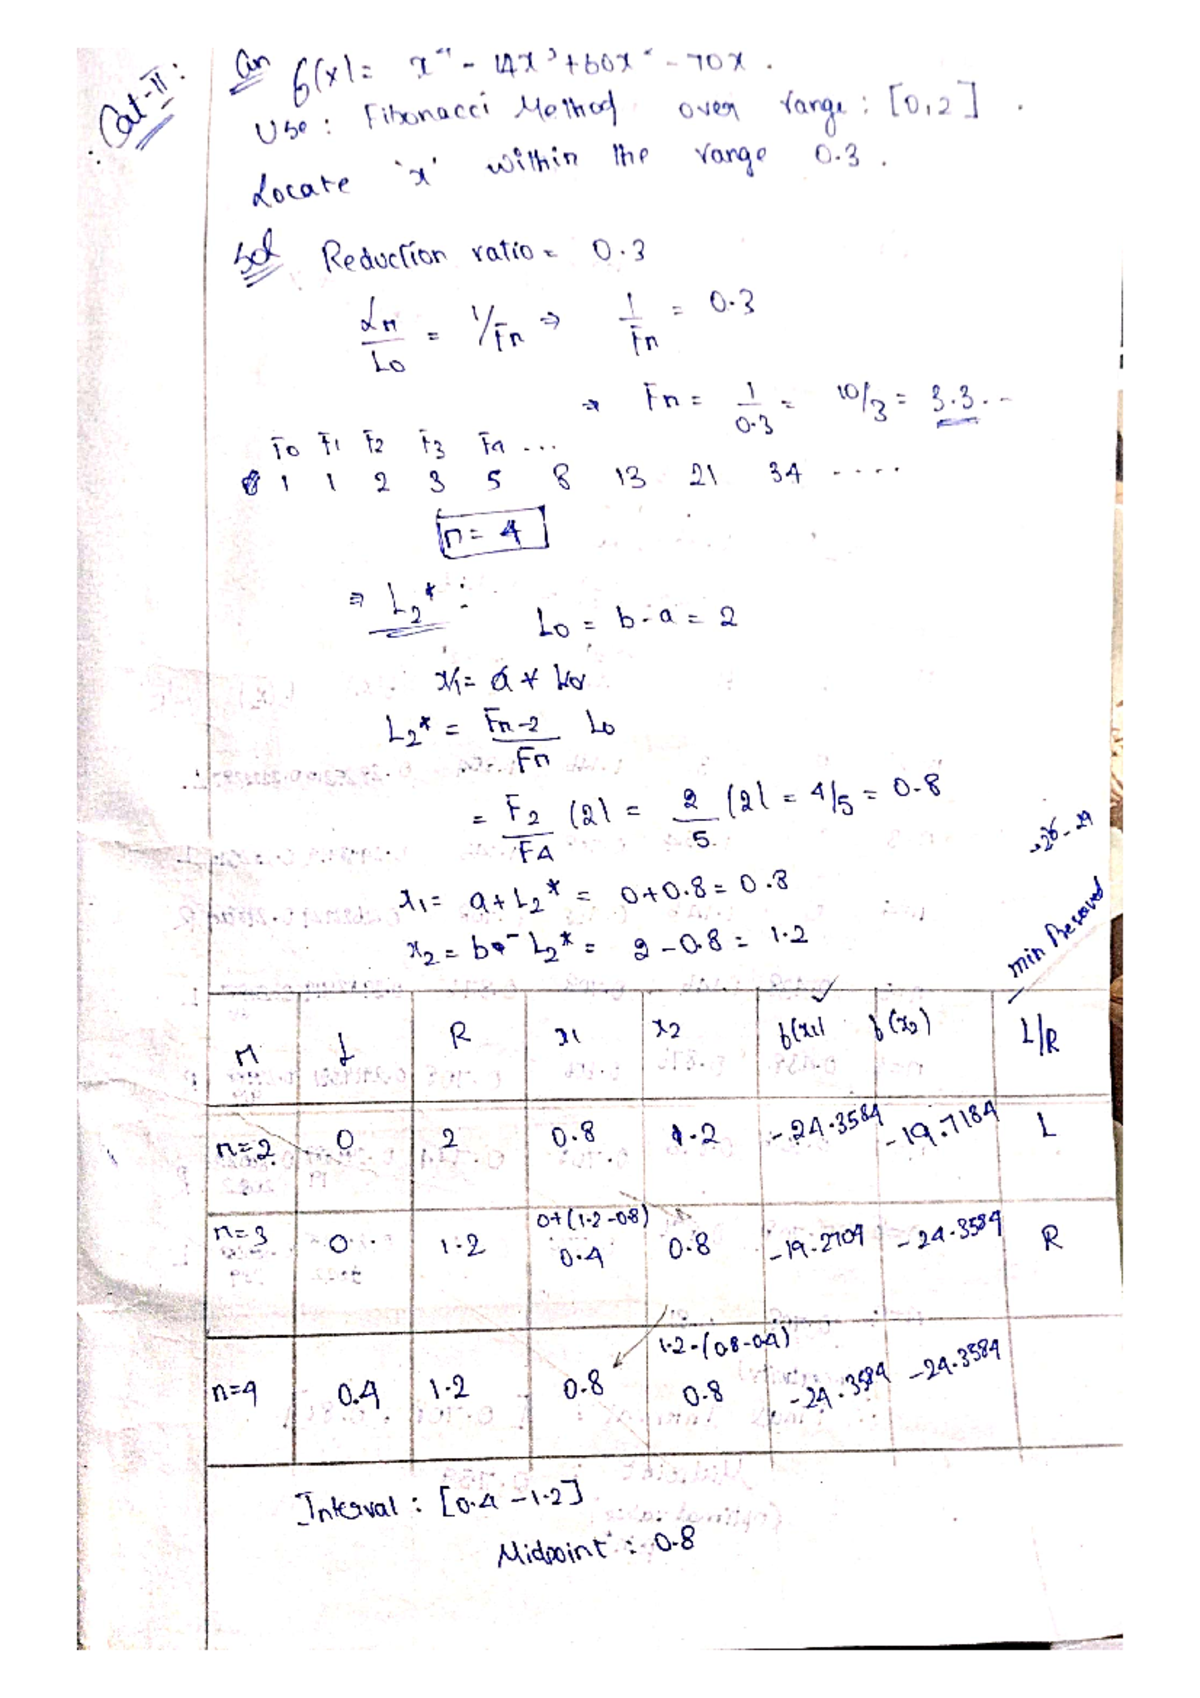 Cat-II :
Qn f(x) = x⁴ - 14x³ + 60x² - 70x .
Use : Fibonacci Method over range : [0,2] .
Locate 'x' within the range 0.3 .
Sol Reduction ratio = 0.3
Ln/L0 = 1/Fn ⇒ 1/Fn = 0.3
⇒ Fn = 1/0.3 = 10/3 = 3.3...
F0 F1 F2 F3 F4 ...
1 1 2 3 5 8 13 21 34 .....
n = 4
⇒ L2* :
L0 = b - a = 2
L2* = Fn-2/Fn L0
= F2/F4 (2) = 2/5 (2) = 4/5 = 0.8
x1 = a + L2* = 0 + 0.8 = 0.8
x2 = b - L2* = 2 - 0.8 = 1.2
min Preserved
n L R x1 x2 f(x1) f(x2) L/R
n=2 0 2 0.8 1.2 -24.3584 -19.7184 L
0+(1.2-0.8)
n=3 0 1.2 0.4 0.8 -19.2704 -24.3584 R
1.2-(0.8-0.4)
n=4 0.4 1.2 0.8 0.8 -24.3584 -24.3584
Interval : [0.4 - 1.2]
Midpoint : 0.8